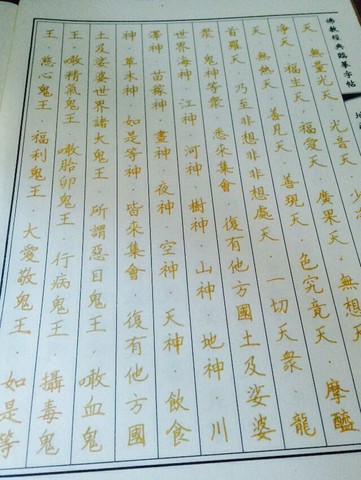 佛教經典臨摹字帖
天·無量光天·光音天·少
淨天·福生天·福愛天·廣果天·無想天
天·無熱天·善見天·善現天·色究竟天·摩醯
首羅天·乃至非想非非想處天·一切天衆·龍
衆·鬼神等衆·悉來集會·復有他方國土及娑婆
世界海神·江神·河神·樹神·山神·地神·川
澤神·苗稼神·晝神·夜神·空神·天神·飲食
神·草木神·如是等神·皆來集會·復有他方國
土及娑婆世界諸大鬼王·所謂惡目鬼王·噉血鬼
王·噉精氣鬼王·噉胎卵鬼王·行病鬼王·攝毒鬼
王·慈心鬼王·福利鬼王·大愛敬鬼王·如是等